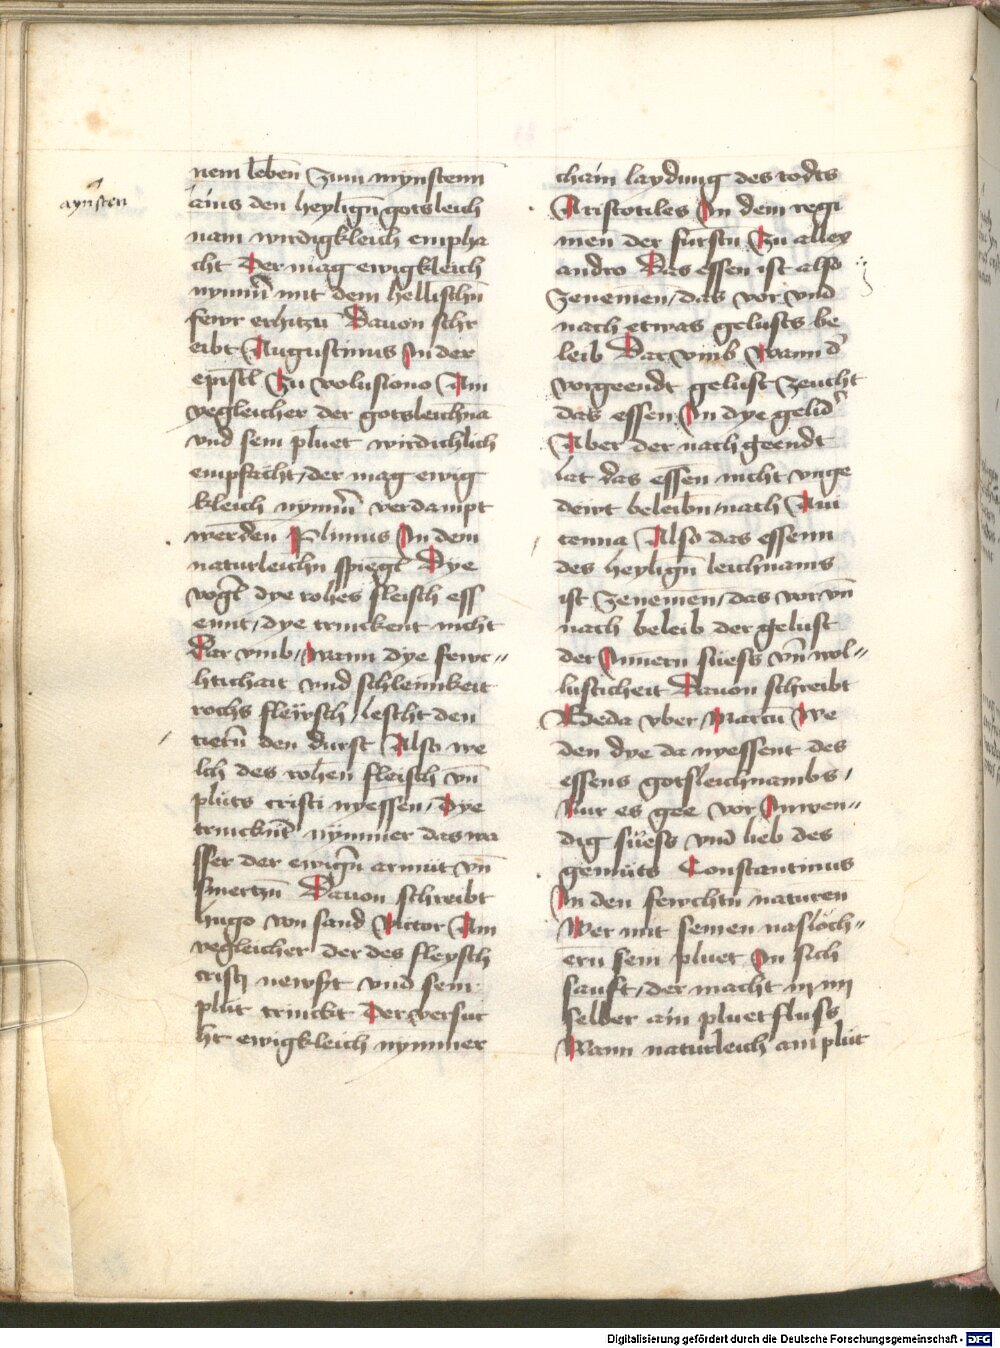 aynsten
nem leben Zum mynstenn
ains den heyligen gotsleich
nam wirdigkleich empha
cht Der mag ewigkleich
nymer mit dem hellischn̄
fewr erhitzn̄ Dauon schr
eibt Augustinus In der
epistl̄ Zu volusiono Ain
yegleicher der gotsleichnā
vnd sein pluet wirdichlich
empfacht / der mag ewig
kleich nymer̄ verdampt
werden Plinius In dem
naturleichn̄ spiegl̄ Dye
vogl̄ dye rohes fleisch ess
ennt / dye trinckent nicht
Dar vmb / wann dye fewc〃
htichait vnd schleimkeit
rochs fleysch / lescht den
tiern̄ den durst Also we
lch des rohen fleisch vn̄
pluts cristi nyessen / Dye
trincknt̄ nymmer das wa
sser der ewign̄ armut vn̄
smertzn̄ Dauon schreibt
hugo von sand Victor Ain
yegleicher der des fleysch
cristi newsst vnd sein
plut trinckt Der versuc
ht ewigkleich nymmer
chain laydung des todts
Aristotiles In dem regi
men der furstn̄ Zu allex
andro Das essen ist also
Zenemen / das vor vnd
nach etwas gelusts be
leib Dar vmb Wann d̄
vorgeendt gelust Zeucht
das essen In dye gelid̄
Aber der nach geendt
lat das essen nicht vnge
dewt beleibn̄ / nach Aui
cenna Also das essenn
des heylign̄ leichnams
ist Zenemen / das vor vn̄
nach beleib der gelust
der Innern suess vn̄ wol〃
lusticheit Dauon schreibt
Beda vber Marcū We
den dye da nyessent des
essens gotsleichnambs /
Nur es gee vor Inwen〃
dig suess vnd lieb des
gemuts Constantinus
In den fewchtn̄ naturen
Wer mit seinen nasloch〃
ern sein pluet In sich
sauft / der macht im
selber ain pluetfluss
Wann naturleich ain plut